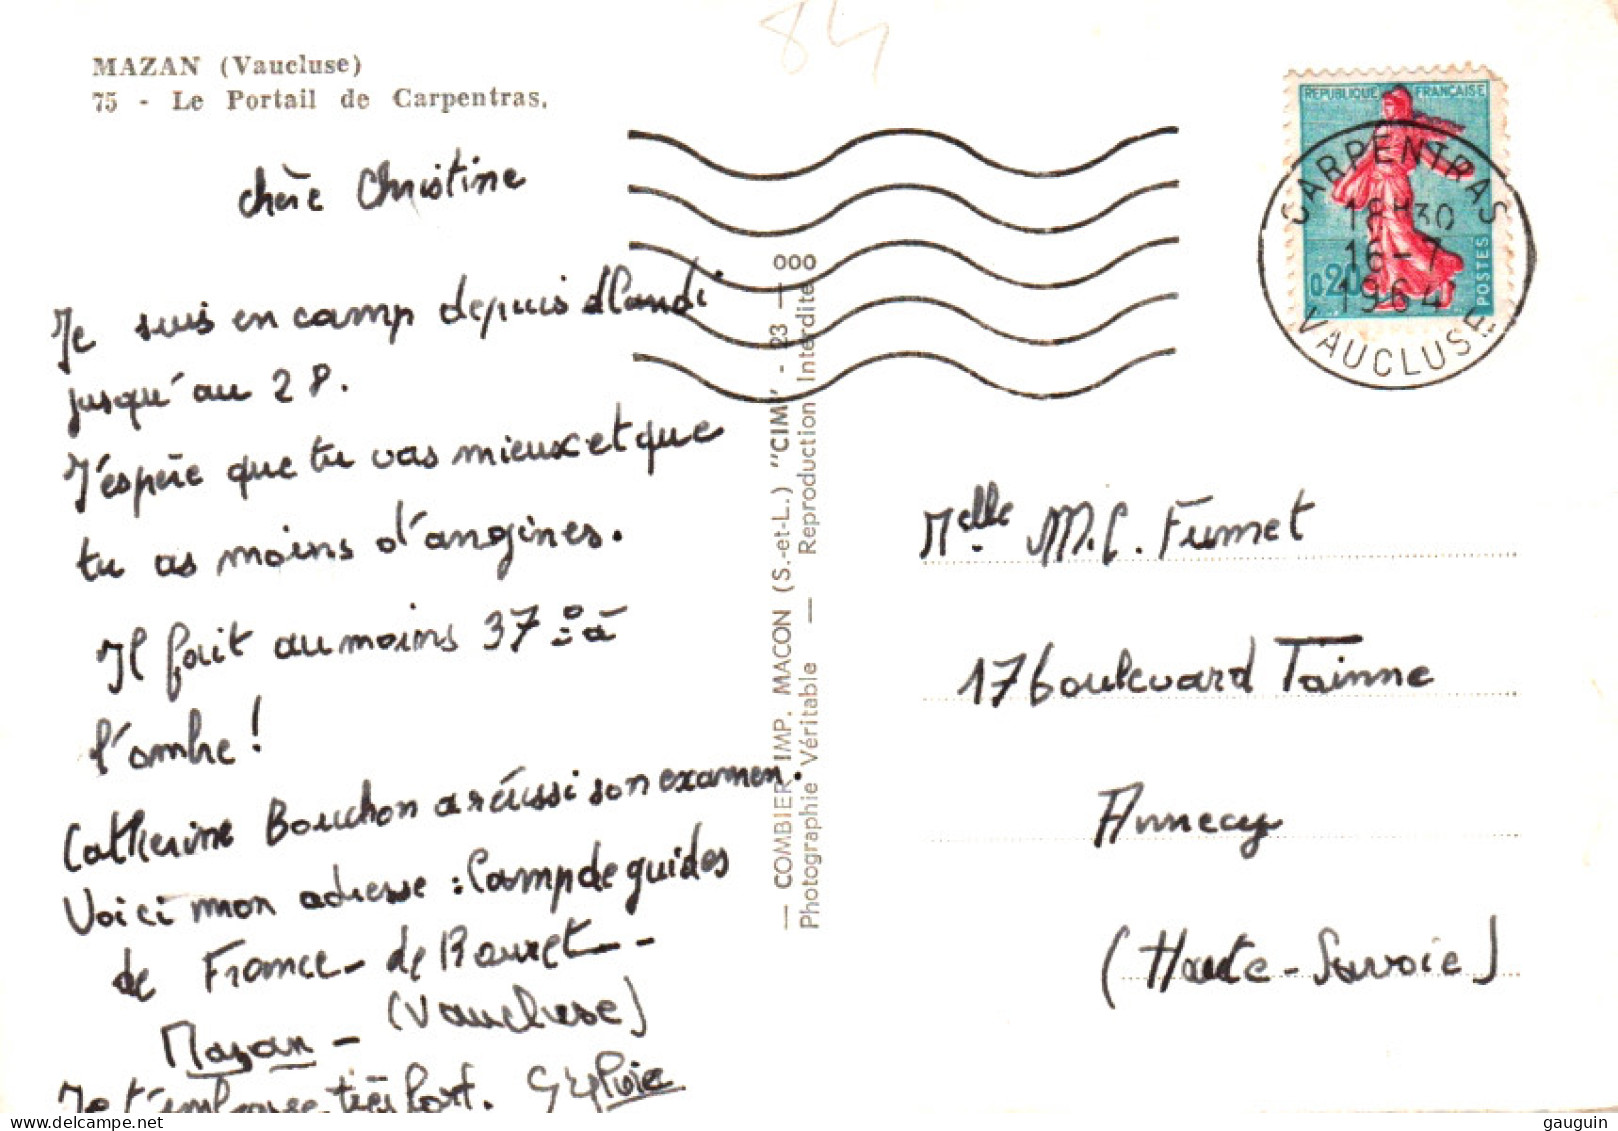 84
MAZAN (Vaucluse)
75 - Le Portail de Carpentras.
chère Christine
Je suis en camp depuis lundi
jusqu'au 28.
J'espère que tu vas mieux et que
tu as moins d'angines.
Il fait au moins 37° à
l'ombre !
Catherine Bouchon a réussi son examen.
Voici mon adresse : Camp de guides
de France - de Rouret -
Mazan - (Vaucluse)
Je t'embrasse très fort. Sylvie
— COMBIER IMP. MACON (S.-et-L.) "CIM" - 23 — 000
Photographie Véritable — Reproduction Interdite
REPUBLIQUE FRANÇAISE
0,20
POSTES
CARPENTRAS
18H30
16-7
1964
VAUCLUSE
Melle M.C. Fumet
17 boulevard Tainne
Annecy
(Haute-Savoie)
gauguin